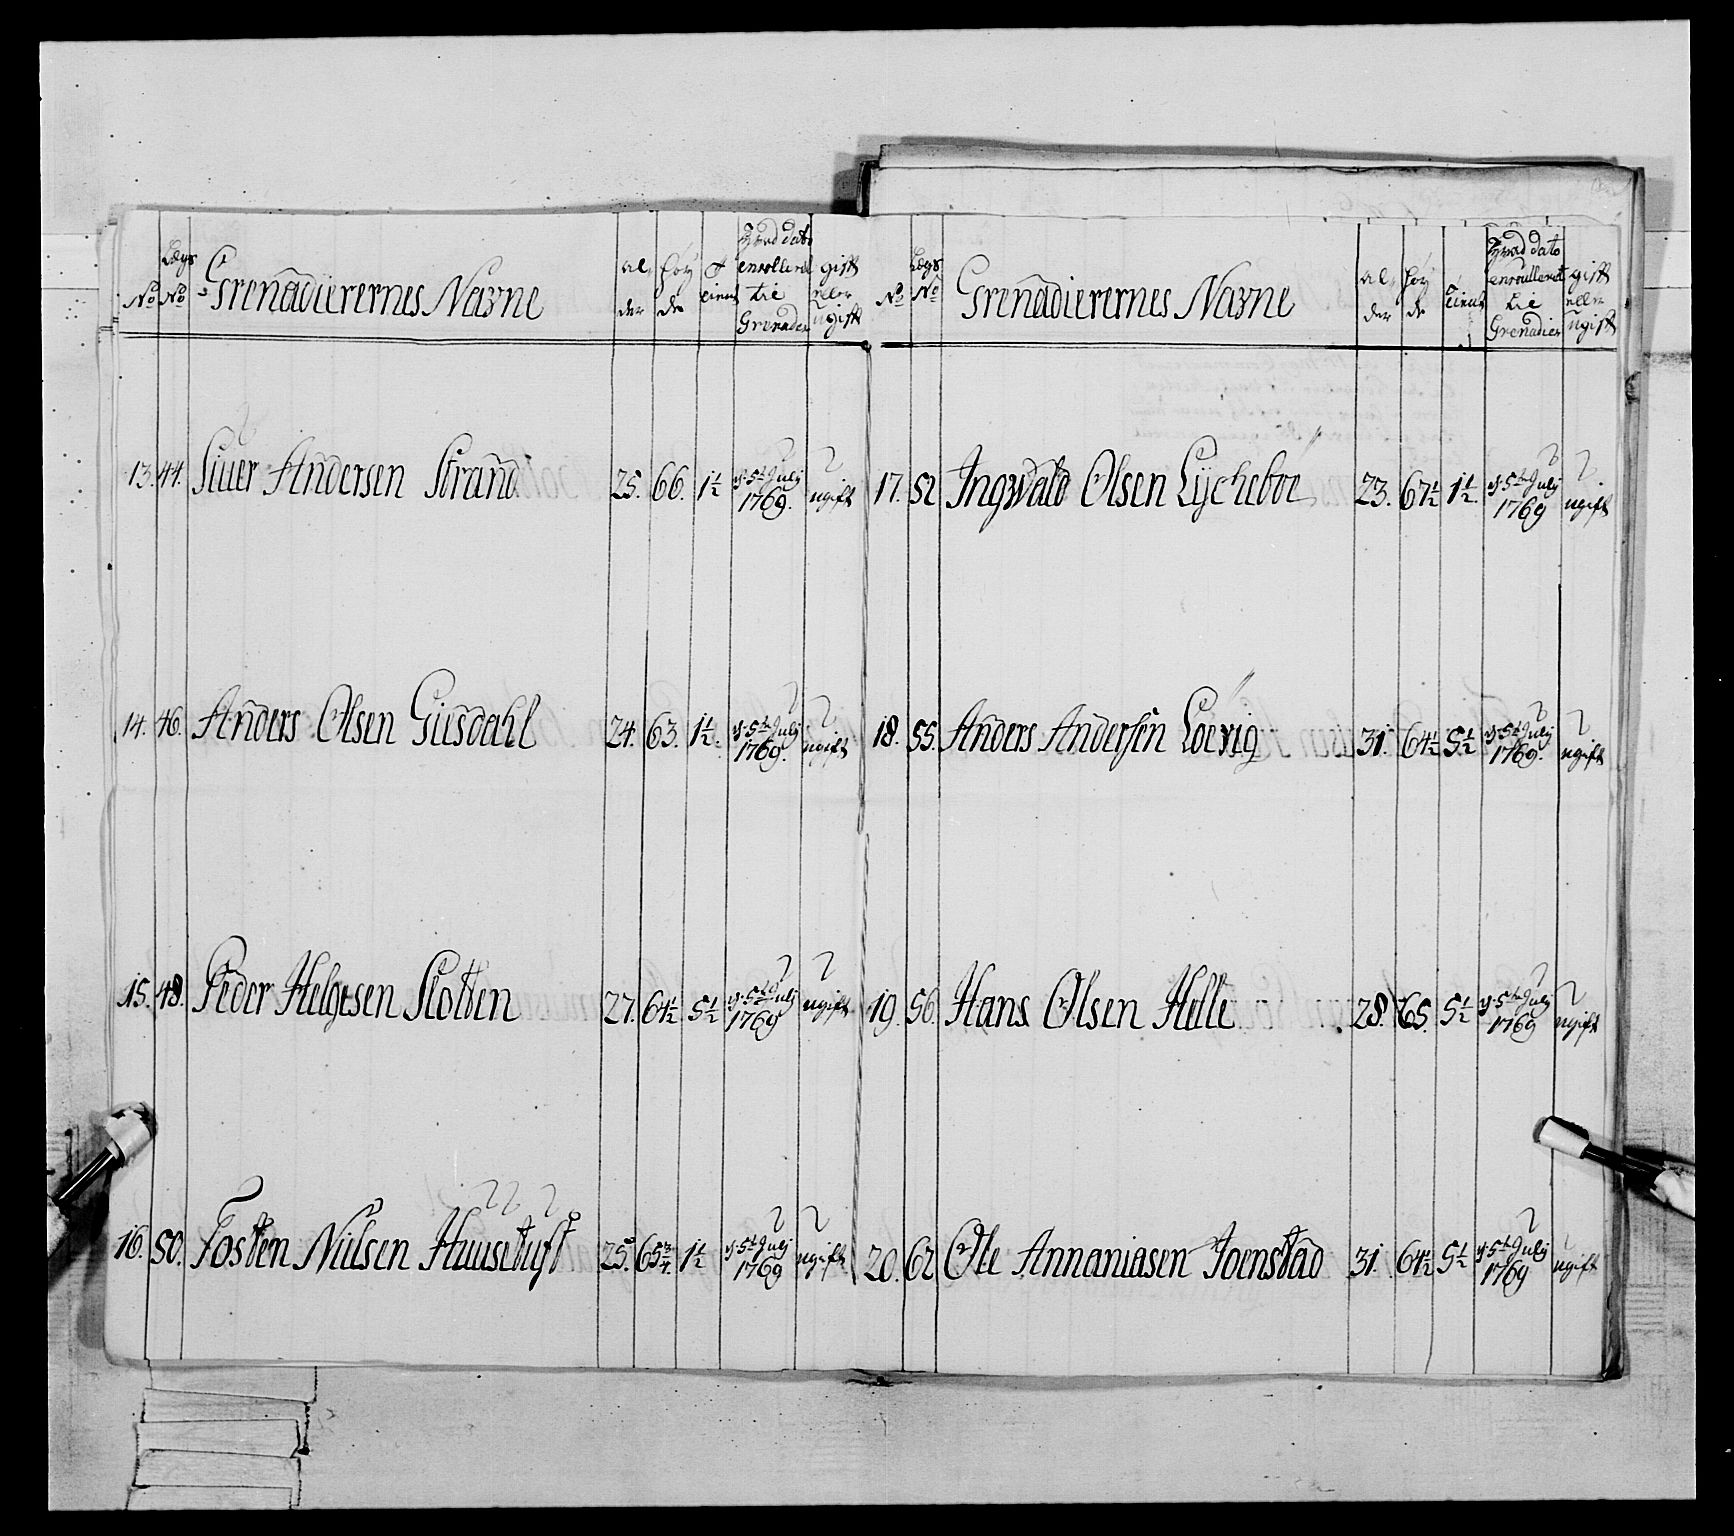 No
Lægs No
Grenadierernes Navne
al,
der
høy
de
tienst
Hvad dato
enrolleret
til
Grenader
gift
eller
ugift
13. 44. Siuer Andersen Strand 25. 66. 1½ d. 5t July 1769. ugift
14. 46. Anders Olsen Giesdahl 24. 63. 1½. d. 5t July 1769. ugift
15. 48. Peder Helgesen Slotten 27. 64½ 5½ d. 5t July 1769 ugift
16. 50. Tosten Nielsen Huusetuft 25. 65¾. 1½ d. 5t July 1769 ugift
No
Lægs No
Grenadierernes Navne
al,
der
høy
de
tienst
Hvad dato
enrulleret
til
Grenadier
gift
eller
ugift
17. 52 Ingwald Olsen Lycheboe 23. 67½ 1½. d. 5t July 1769 ugift
18. 55. Anders Andersen Loevig 31. 64½ 5½ d. 5t July 1769. ugift
19. 56. Hans Olsen Helle 28. 65. 5½ d. 5t July 1769 ugift
20. 62 Ole Annaniasen Joenstad 31. 64½ 5½ d. 5t July 1769 ugift